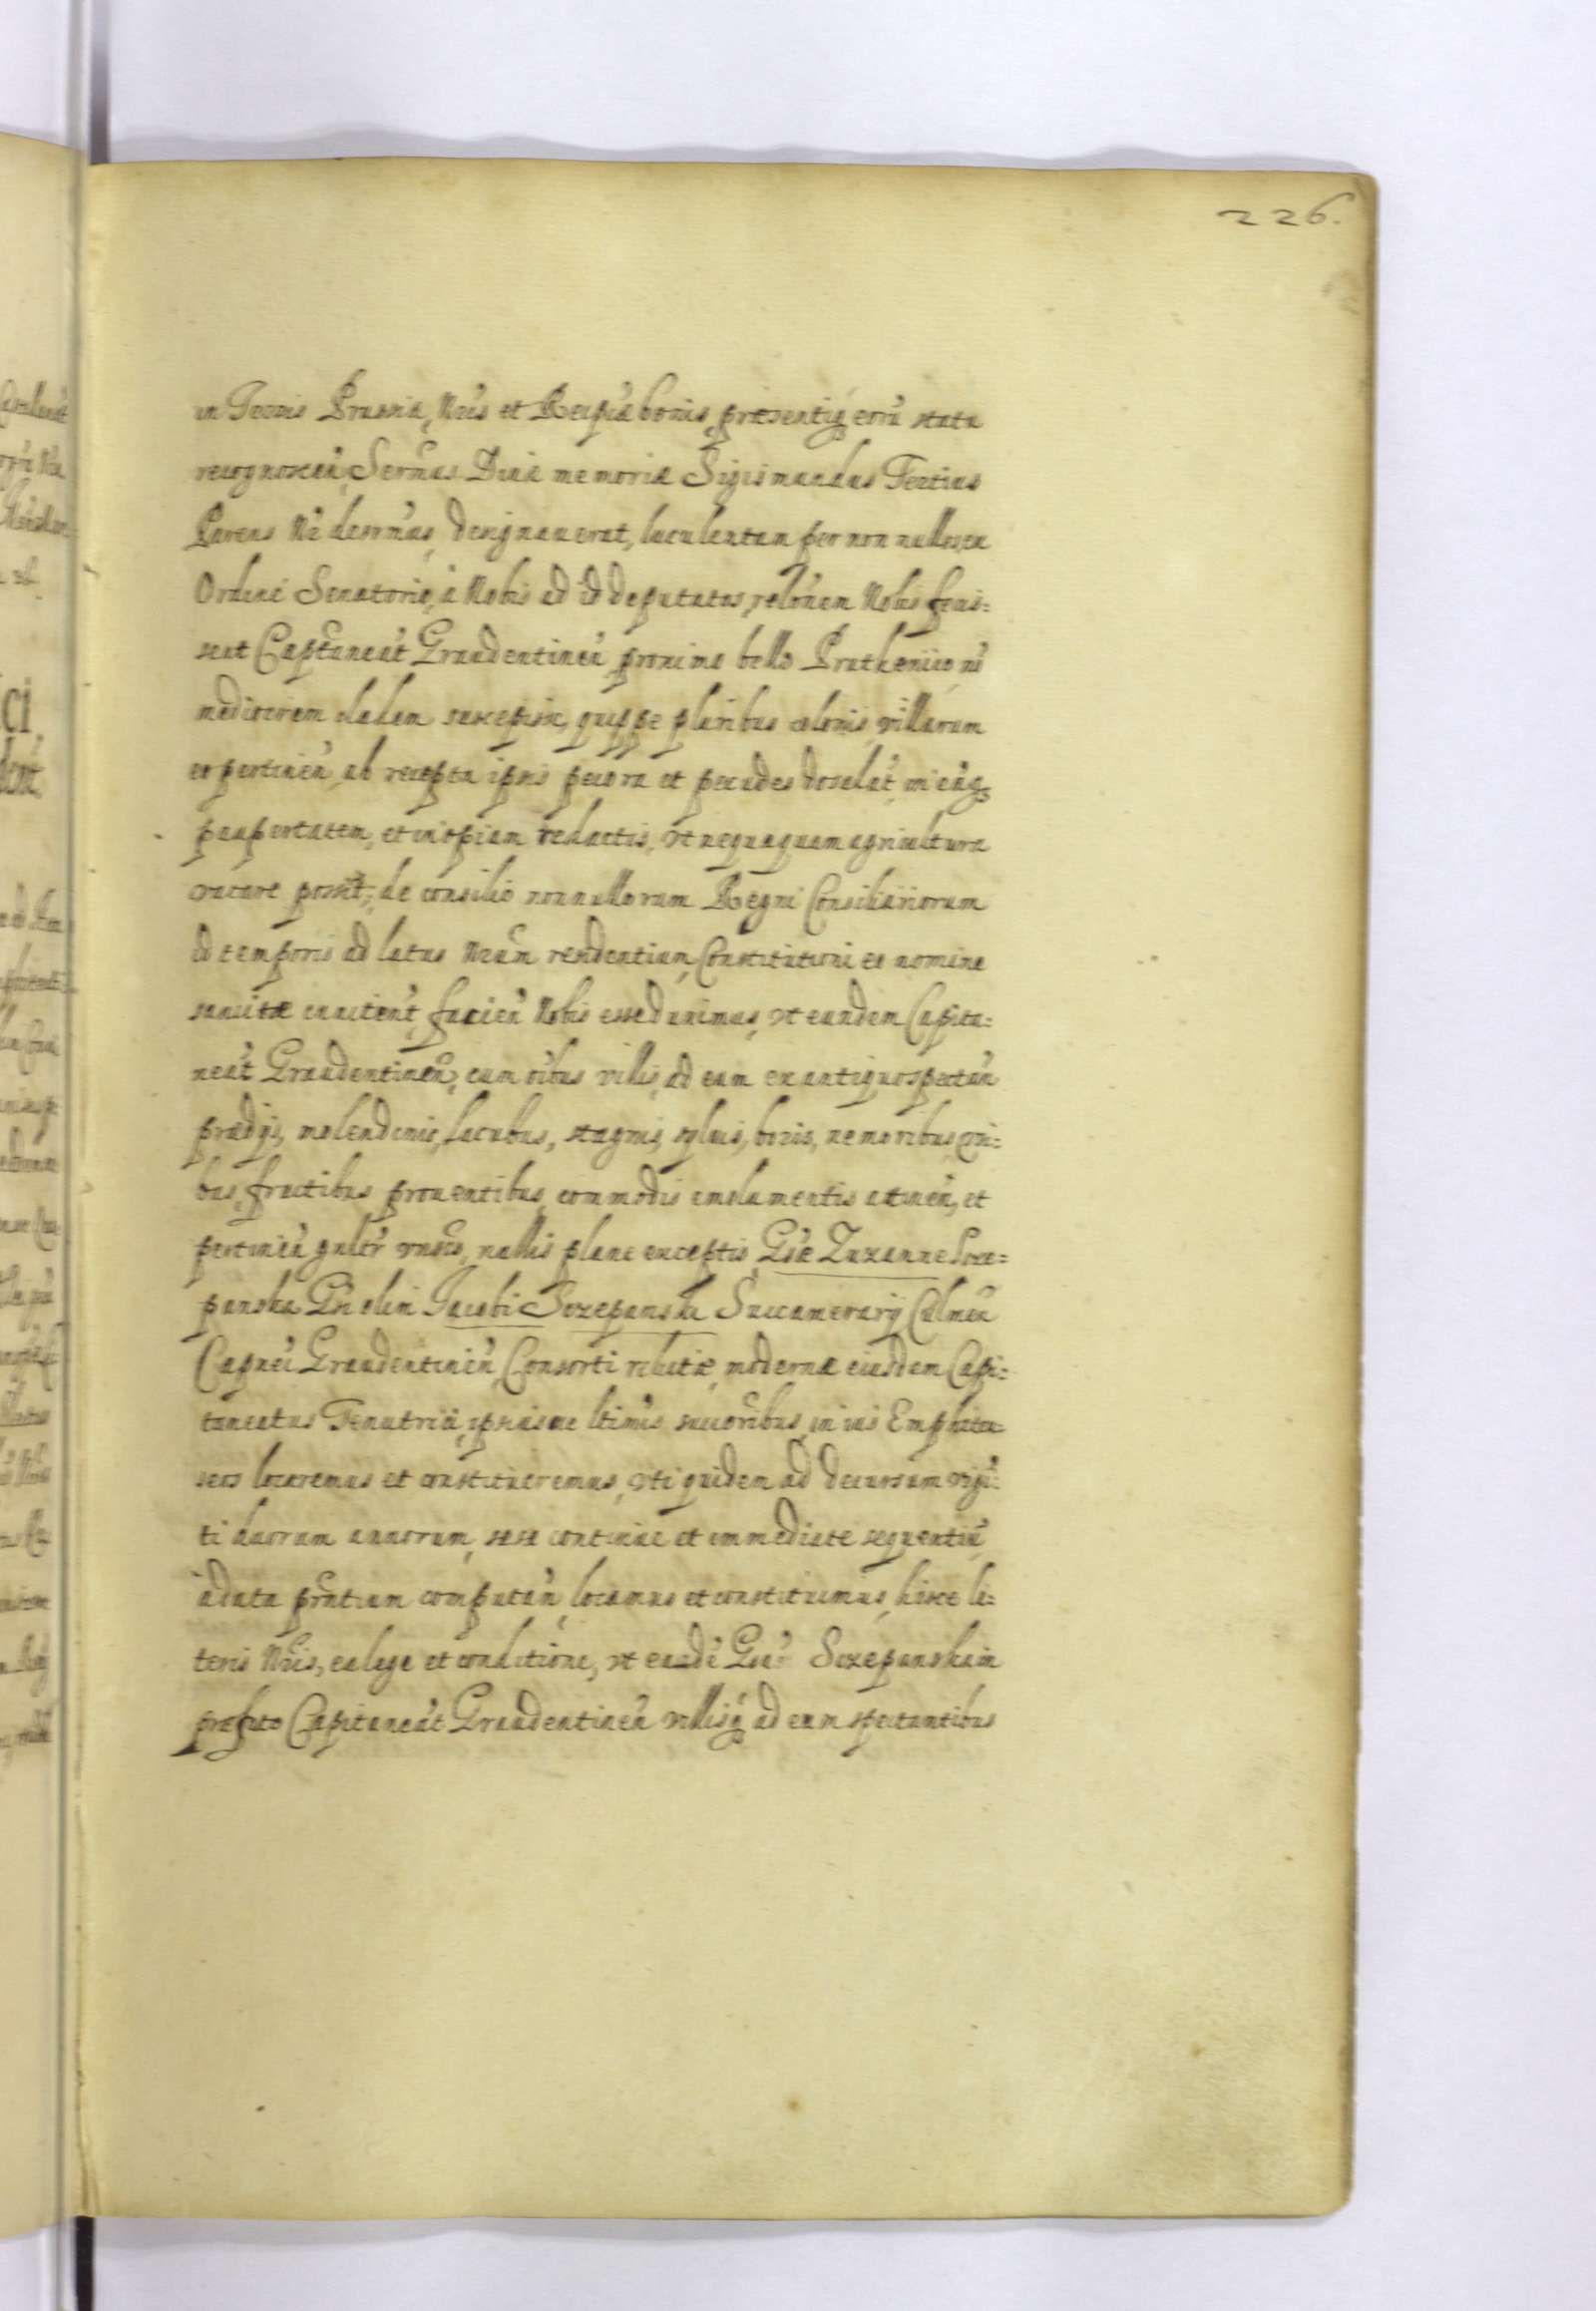 226.
in Terris Prussiæ, Nris et Reipúæ bonis, præsentiq́ eorú statu
recognoscen̄, Serm̃us Diuæ memoriæ Sigismundus Tertius
Parens Nr̃ desrm̃us, designauerat, luculentam per nonnullos ex
Ordine Senatorio, à Nobis ad id deputatos, relõnem Nobis fecis=
sent Captaneat̃ Graudentinen̄ proximo bello Pruthenico nõ
mediocrem cladem suscepisse, quippe pluribus colonis, villarum
eo pertinen̄, ab receptu ipsis pecora et pecudes
paupertatem, et inopiam redactis, vt nequaquam agricultura
vacare possit; de consilio nonnullorum Regni Consiliariorum
id temporis ad latus Nrũm residentium, Constitutioni eo nomine
sancitæ innitent̃, facien̄ Nobis esse duximus, vt eundem Capita=
neat̃ Graudentinen̄, cum oĩbus villis, ad eum ex antiquo spectañ
prædijs, molendinis, lacubus, stagnis, syluis, boris, nemoribus,
bus, fructibus prouentibus, commodis emolumentis attinen̄, et
pertinen̄ gñlter vnỉs, nullis plane exceptis, Gsæ Zuzannæ Szcze=
panska Gsi olim Jacobi Sczepanski Succamerarij Culmen̄
Capnei Graudentinen̄, Consorti relictæ, modernæ eiusdem Capi=
taneatus Tenutrici, ipsiusue ltimis succoribus, in ius Emphiteu=
seos locaremus et constitueremus, vti quidem ad decursum vigi=
ti duorum annorum, sese continue et immediate sequentiũ
à data pr̃ntium computan̄, locamus et constituimus, hisce li=
teris Nris, ea lege et conditione, vt eadẽ Gsa Sczepanska in
præfato Capitaneat̃ Graudentinen̄ villisq́ ad eum spectantibus